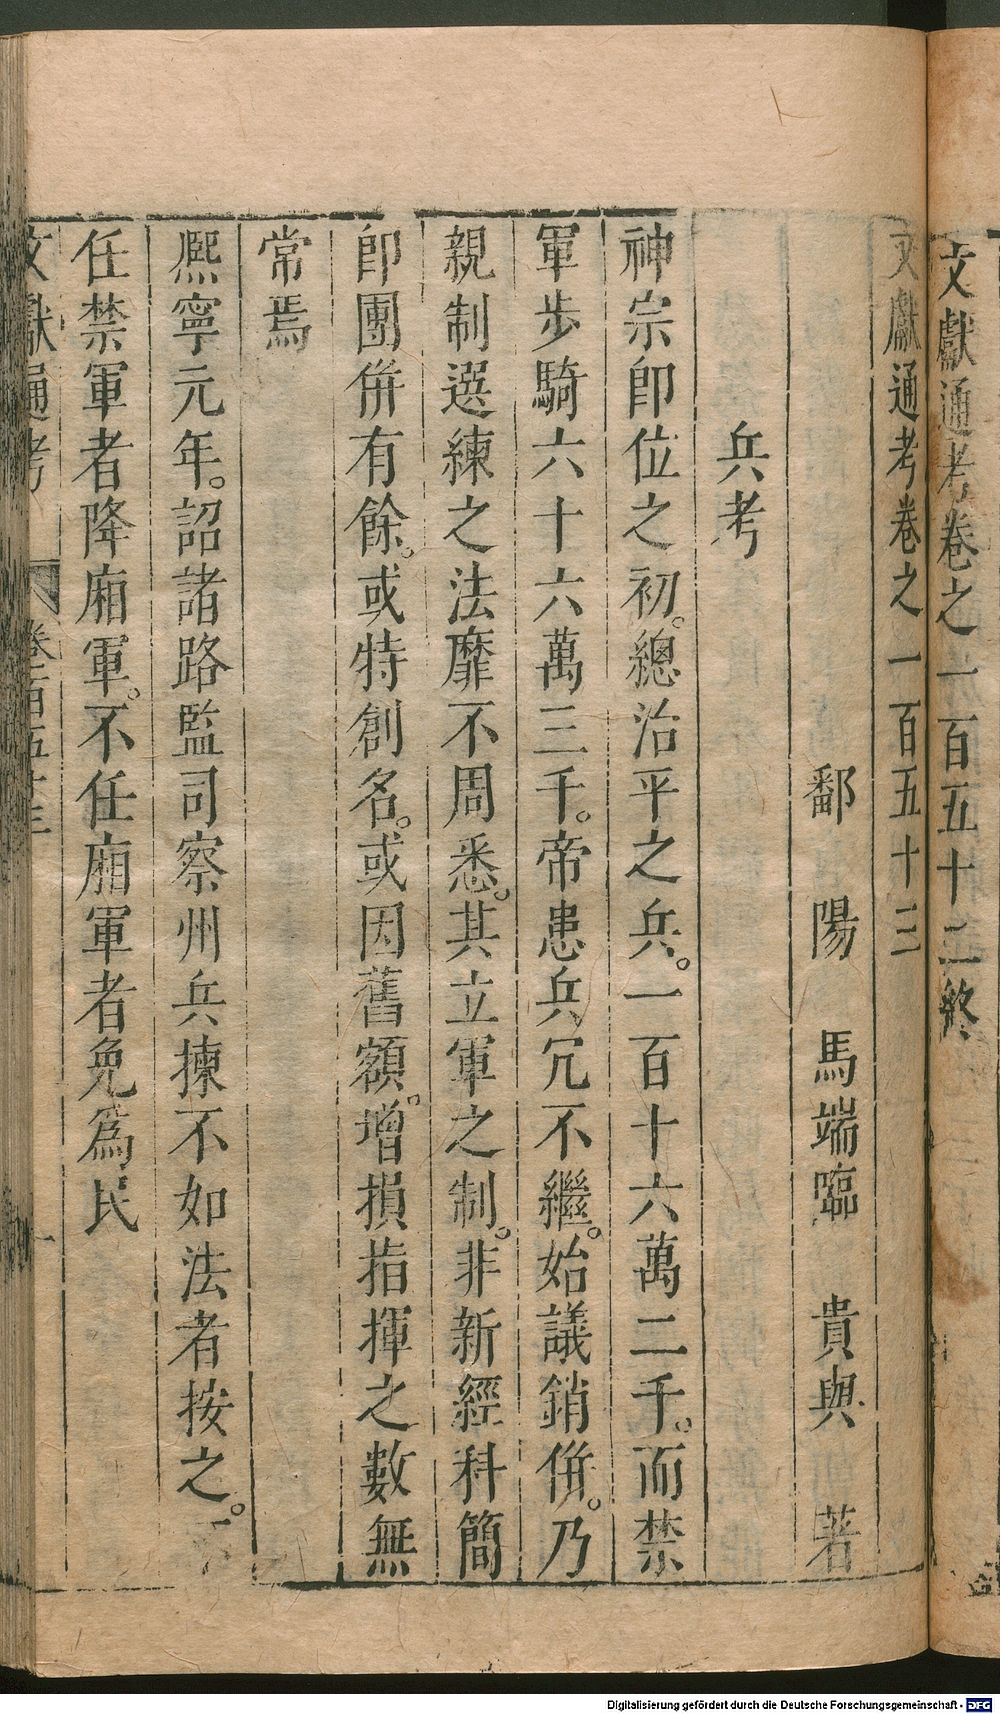 文獻通考卷之一百五十二終
文獻通考卷之一百五十三
鄱陽馬端臨貴與著
兵考
神宗卽位之初。總治平之兵。一百十六萬二千。而禁
軍步騎六十六萬三千。帝患兵冗不繼。始議銷併。乃
親制選練之法靡不周悉。其立軍之制。非新經科簡
卽團併有餘。或特創名。或因舊額。增損指揮之數無
常焉
熙寧元年。詔諸路監司察州兵揀不如法者按之。不
任禁軍者降廂軍。不任廂軍者免爲民
文獻通考
卷一百五十三
一
Digitalisierung gefördert durch die Deutsche Forschungsgemeinschaft - DFG